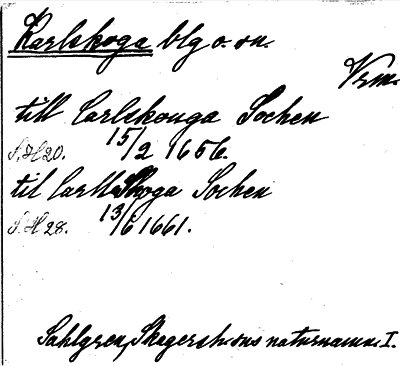 Karlskoga blg o. sn.
Vrm.
till Carlskouga Sochen
S.H 20. 15/2 1656.
til Carllskoga Sochen
S.H 28. 13/6 1661.
Sahlgren, Skagershons naturnamn I.